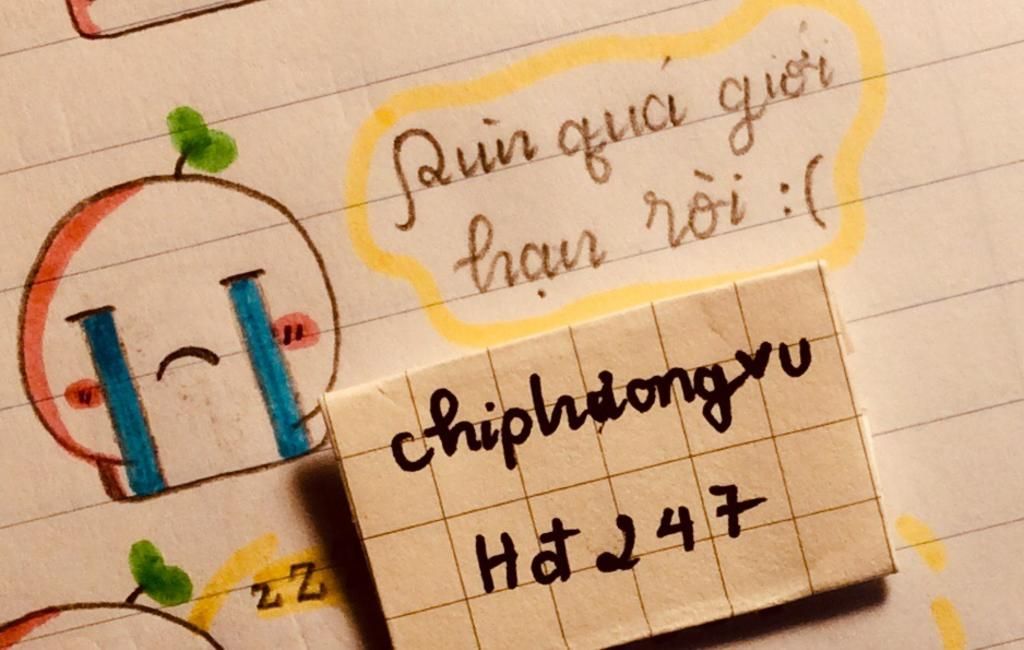 Bùn quá giới
hạn rồi :(
chiphươngvu
Hđ 247
zZ